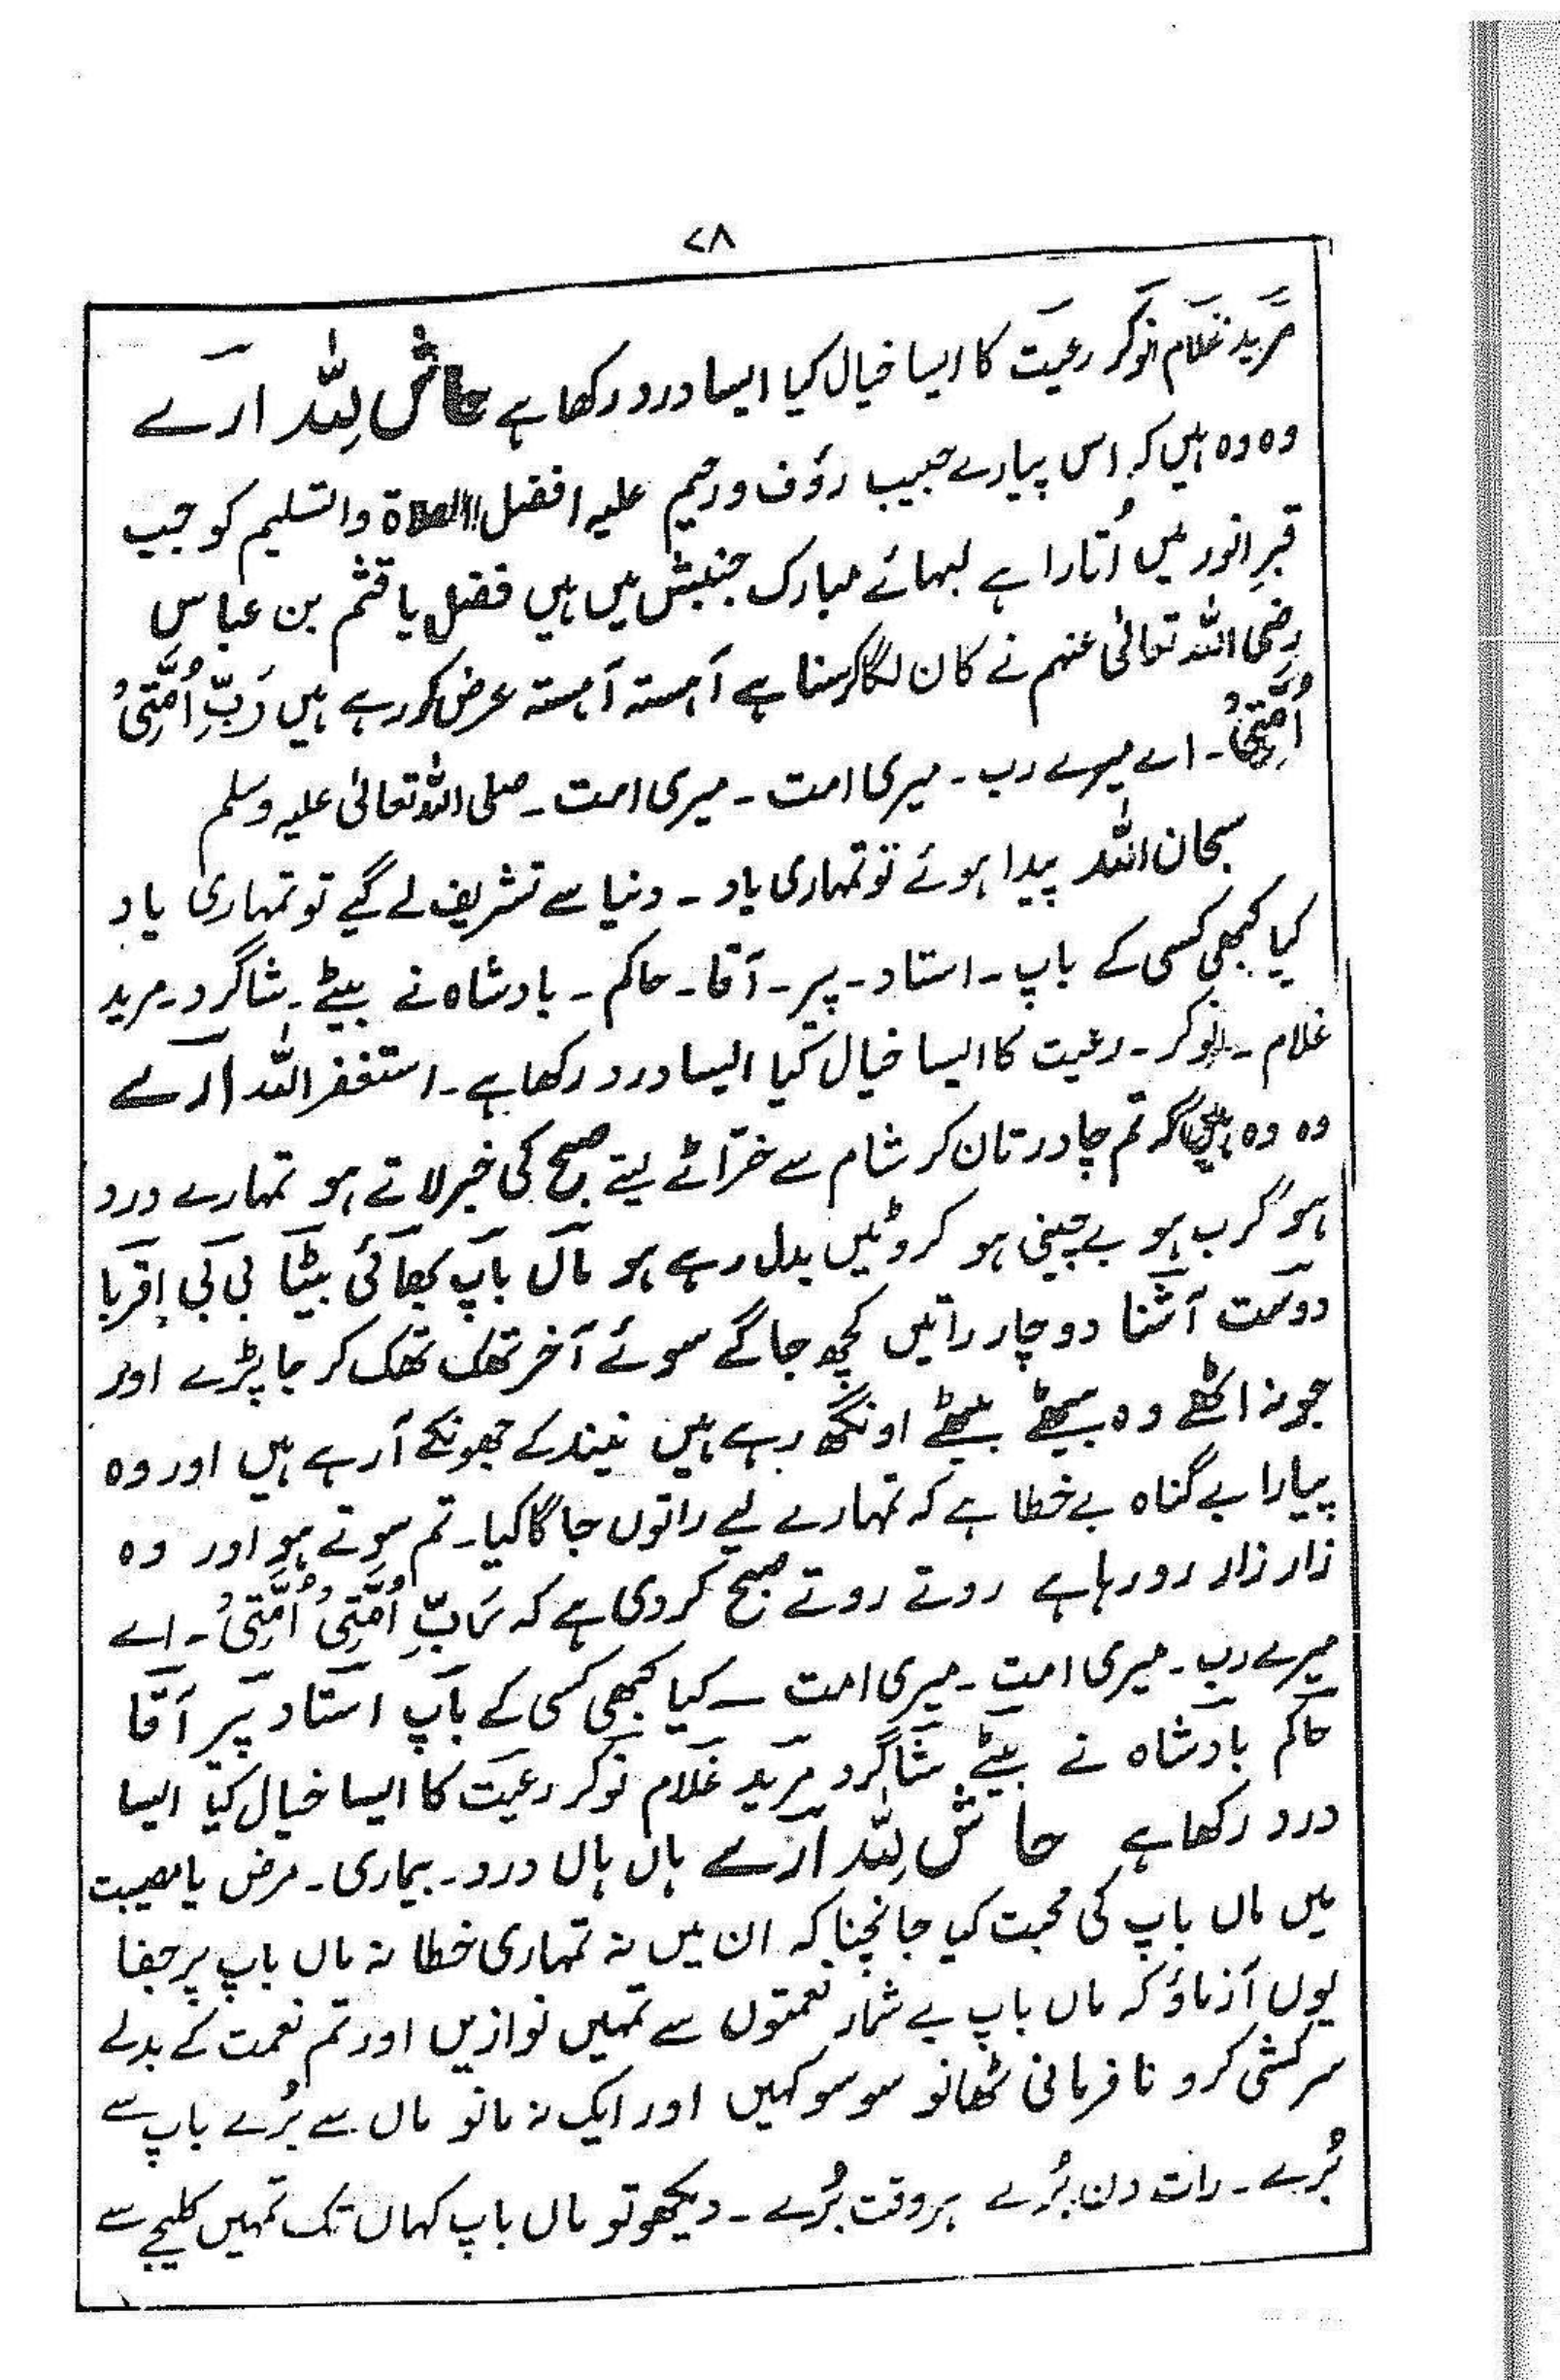 ۷۸
مرید غلام نوکر رعیت کا ایسا خیال کیا ایسا درد رکھا ہے حاش لِلّٰہ ارے
وہ وہ ہیں کہ اس پیارے حبیب رؤف و رحیم علیہ افضل الصلاۃ والتسلیم کو جب
قبرِ انور میں اُتارا ہے لبہائے مبارک جنبش میں ہیں فضل یا قثم بن عباس
رضی اللہ تعالیٰ عنہم نے کان لگا کر سنا ہے آہستہ آہستہ عرض کر رہے ہیں رَبِّ اُمَّتِیْ
اُمَّتِیْ۔ اے میرے رب۔ میری امت۔ میری امت۔ صلی اللہ تعالیٰ علیہ وسلم
سبحان اللہ پیدا ہوئے تو تمہاری یاد۔ دنیا سے تشریف لے گیے تو تمہاری یاد
کیا کبھی کسی کے باپ۔ استاد۔ پیر۔ آقا۔ حاکم۔ بادشاہ نے بیٹے۔ شاگرد۔ مرید
غلام۔ نوکر۔ رعیت کا ایسا خیال کیا ایسا درد رکھا ہے۔ استغفر اللہ ارے
وہ وہ ہیں کہ تم چادر تان کر شام سے خرّاٹے لیتے صبح کی خبر لاتے ہو تمہارے درد
ہو کرب ہو بے چینی ہو کروٹیں بدل رہے ہو ماں باپ بھائی بیٹا بی بی اقربا
دوست آشنا دو چار راتیں کچھ جاگے سوئے آخر تھک تھک کر جا پڑے اور
جو نہ اٹھے وہ بیٹھے بیٹھے اونگھ رہے ہیں نیند کے جھونکے آ رہے ہیں اور وہ
پیارا بے گناہ بے خطا ہے کہ تمہارے لیے راتوں جاگا کیا۔ تم سوتے ہو اور وہ
زار زار رو رہا ہے روتے روتے صبح کر دی ہے کہ رَبِّ اُمَّتِیْ اُمَّتِیْ۔ اے
میرے رب۔ میری امت۔ میری امت۔ کیا کبھی کسی کے باپ استاد پیر آقا
حاکم بادشاہ نے بیٹے شاگرد مرید غلام نوکر رعیت کا ایسا خیال کیا ایسا
درد رکھا ہے حاش لِلّٰہ ارے ہاں ہاں درد۔ بیماری۔ مرض یا مصیبت
میں ماں باپ کی محبت کیا جانچنا کہ ان میں نہ تمہاری خطا نہ ماں باپ پر جفا
یوں آزماؤ کہ ماں باپ بے شمار نعمتوں سے تمہیں نوازیں اور تم نعمت کے بدلے
سرکشی کرو نافرمانی ٹھانو سو سو کہیں اور ایک نہ مانو ماں سے بُرے باپ سے
بُرے۔ رات دن بُرے ہر وقت بُرے۔ دیکھو تو ماں باپ کہاں تک تمہیں کلیجے سے